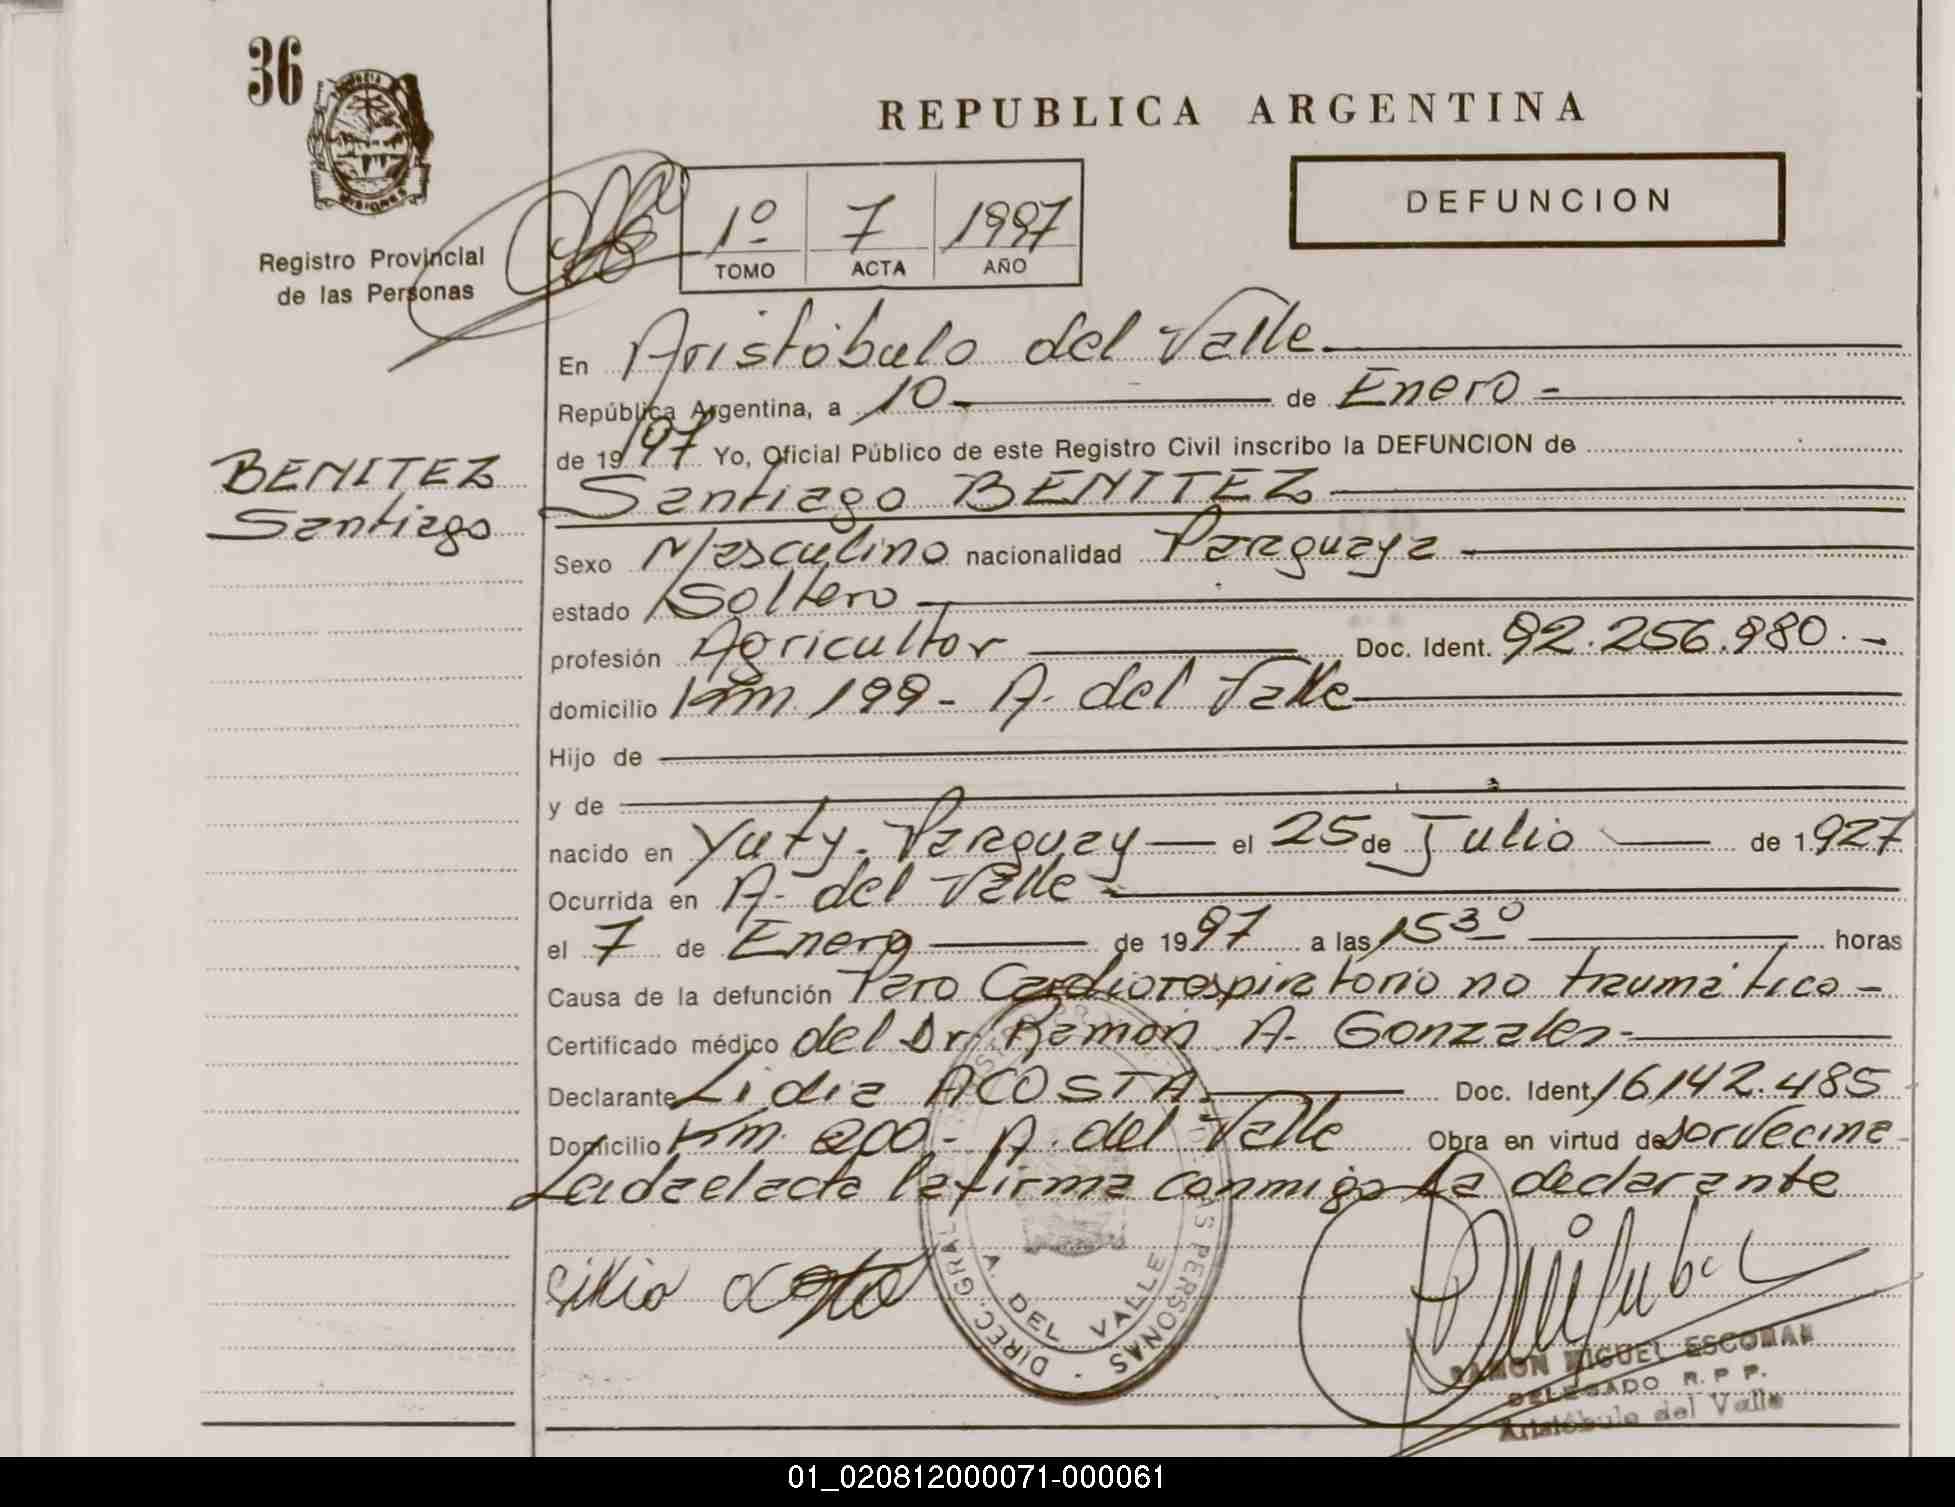 36
PROVINCIA
MISIONES
Registro Provincial
de las Personas
REPUBLICA ARGENTINA
DEFUNCION
1º 7 1997
TOMO ACTA AÑO
BENITEZ
Santiago
En Aristóbulo del Valle
República Argentina, a 10 de Enero -
de 19 97 Yo, Oficial Público de este Registro Civil inscribo la DEFUNCION de
Santiago BENITEZ
Sexo Masculino nacionalidad Paraguaya
estado Soltero
profesión Agricultor Doc. Ident. 92.256.980.-
domicilio Km. 199 - A. del Valle
Hijo de
y de
nacido en Yuty - Paraguay - el 25 de Julio de 1.927
Ocurrida en A. del Valle
el 7 de Enero de 19 97 a las 15 30 horas
Causa de la defunción Paro Cardiorespiratorio no traumático -
Certificado médico del Dr. Ramón A. Gonzalez-
Declarante Lidia ACOSTA Doc. Ident. 16.142.485
Domicilio Km. 200 - A. del Valle Obra en virtud de ser vecina -
Leida el acta la firma conmigo la declarante
DIREC. GRAL. PERSONAS
A. DEL VALLE
RAMON MIGUEL ESCOBAR
DELEGADO R. P. P.
Aristóbulo del Valle
01_020812000071-000061